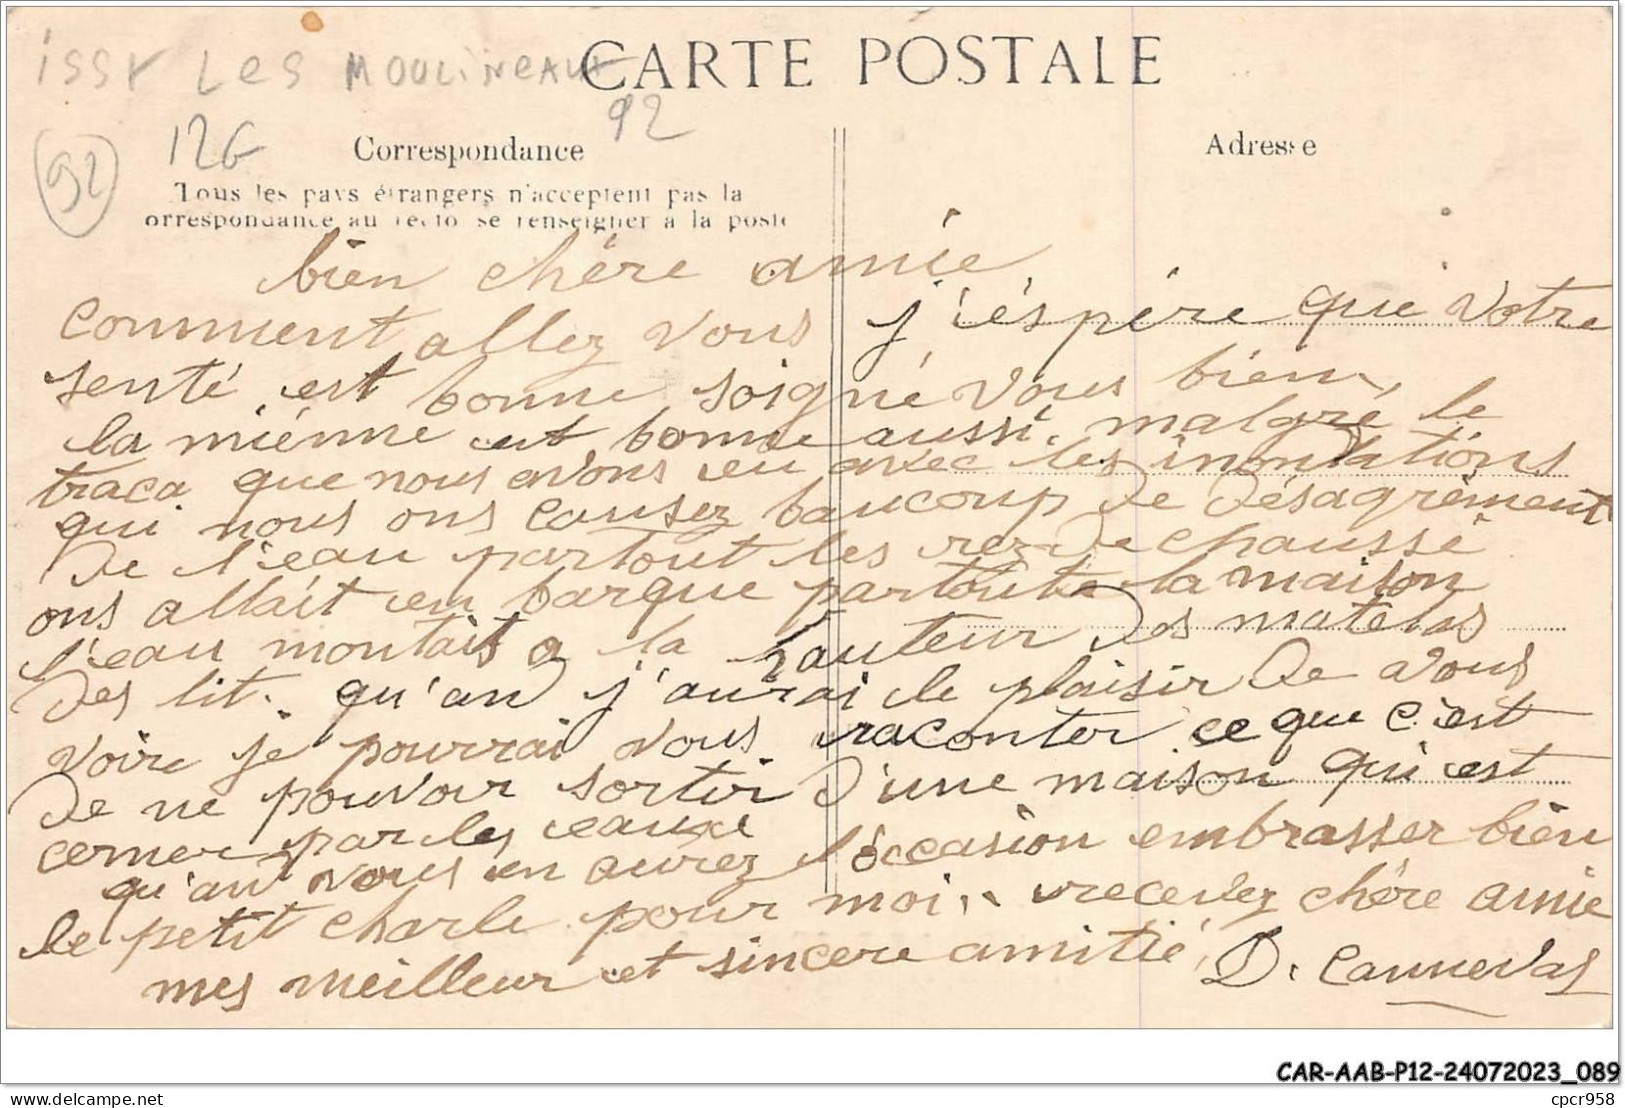 issy Les MOULiNEAUX
CARTE POSTALE
92
92
12G
Correspondance
Adresse
Tous les pays étrangers n'acceptent pas la
orrespondance au recto se renseigner à la poste
bien chère amie
comment allez vous j'éspére que votre
senté est bonne soigné vous bien,
la miénne est bonne aussi, malgré le
traca que nous avons eu avec les inondations
qui nous ons causez baucoup De Désagrèment
De l'eau partout les rez De chaussé
ons allait en barque partoute la maison
l'eau montait a la hauteur Des matelas
Des lit. qu'an j'aurai le plaisir De vous
voire je pourrai vous raconter ce que c'est
De ne pouvoir sortir D'une maison qui est
cerner par les eaux
qu'an vous en aurez l'occasion embrasser bien
le petit charle pour moi, recevez chère amie
mes meilleur et sincere amitié, D. Canneval
CAR-AAB-P12-24072023_089
delcampe.net
cpcr958